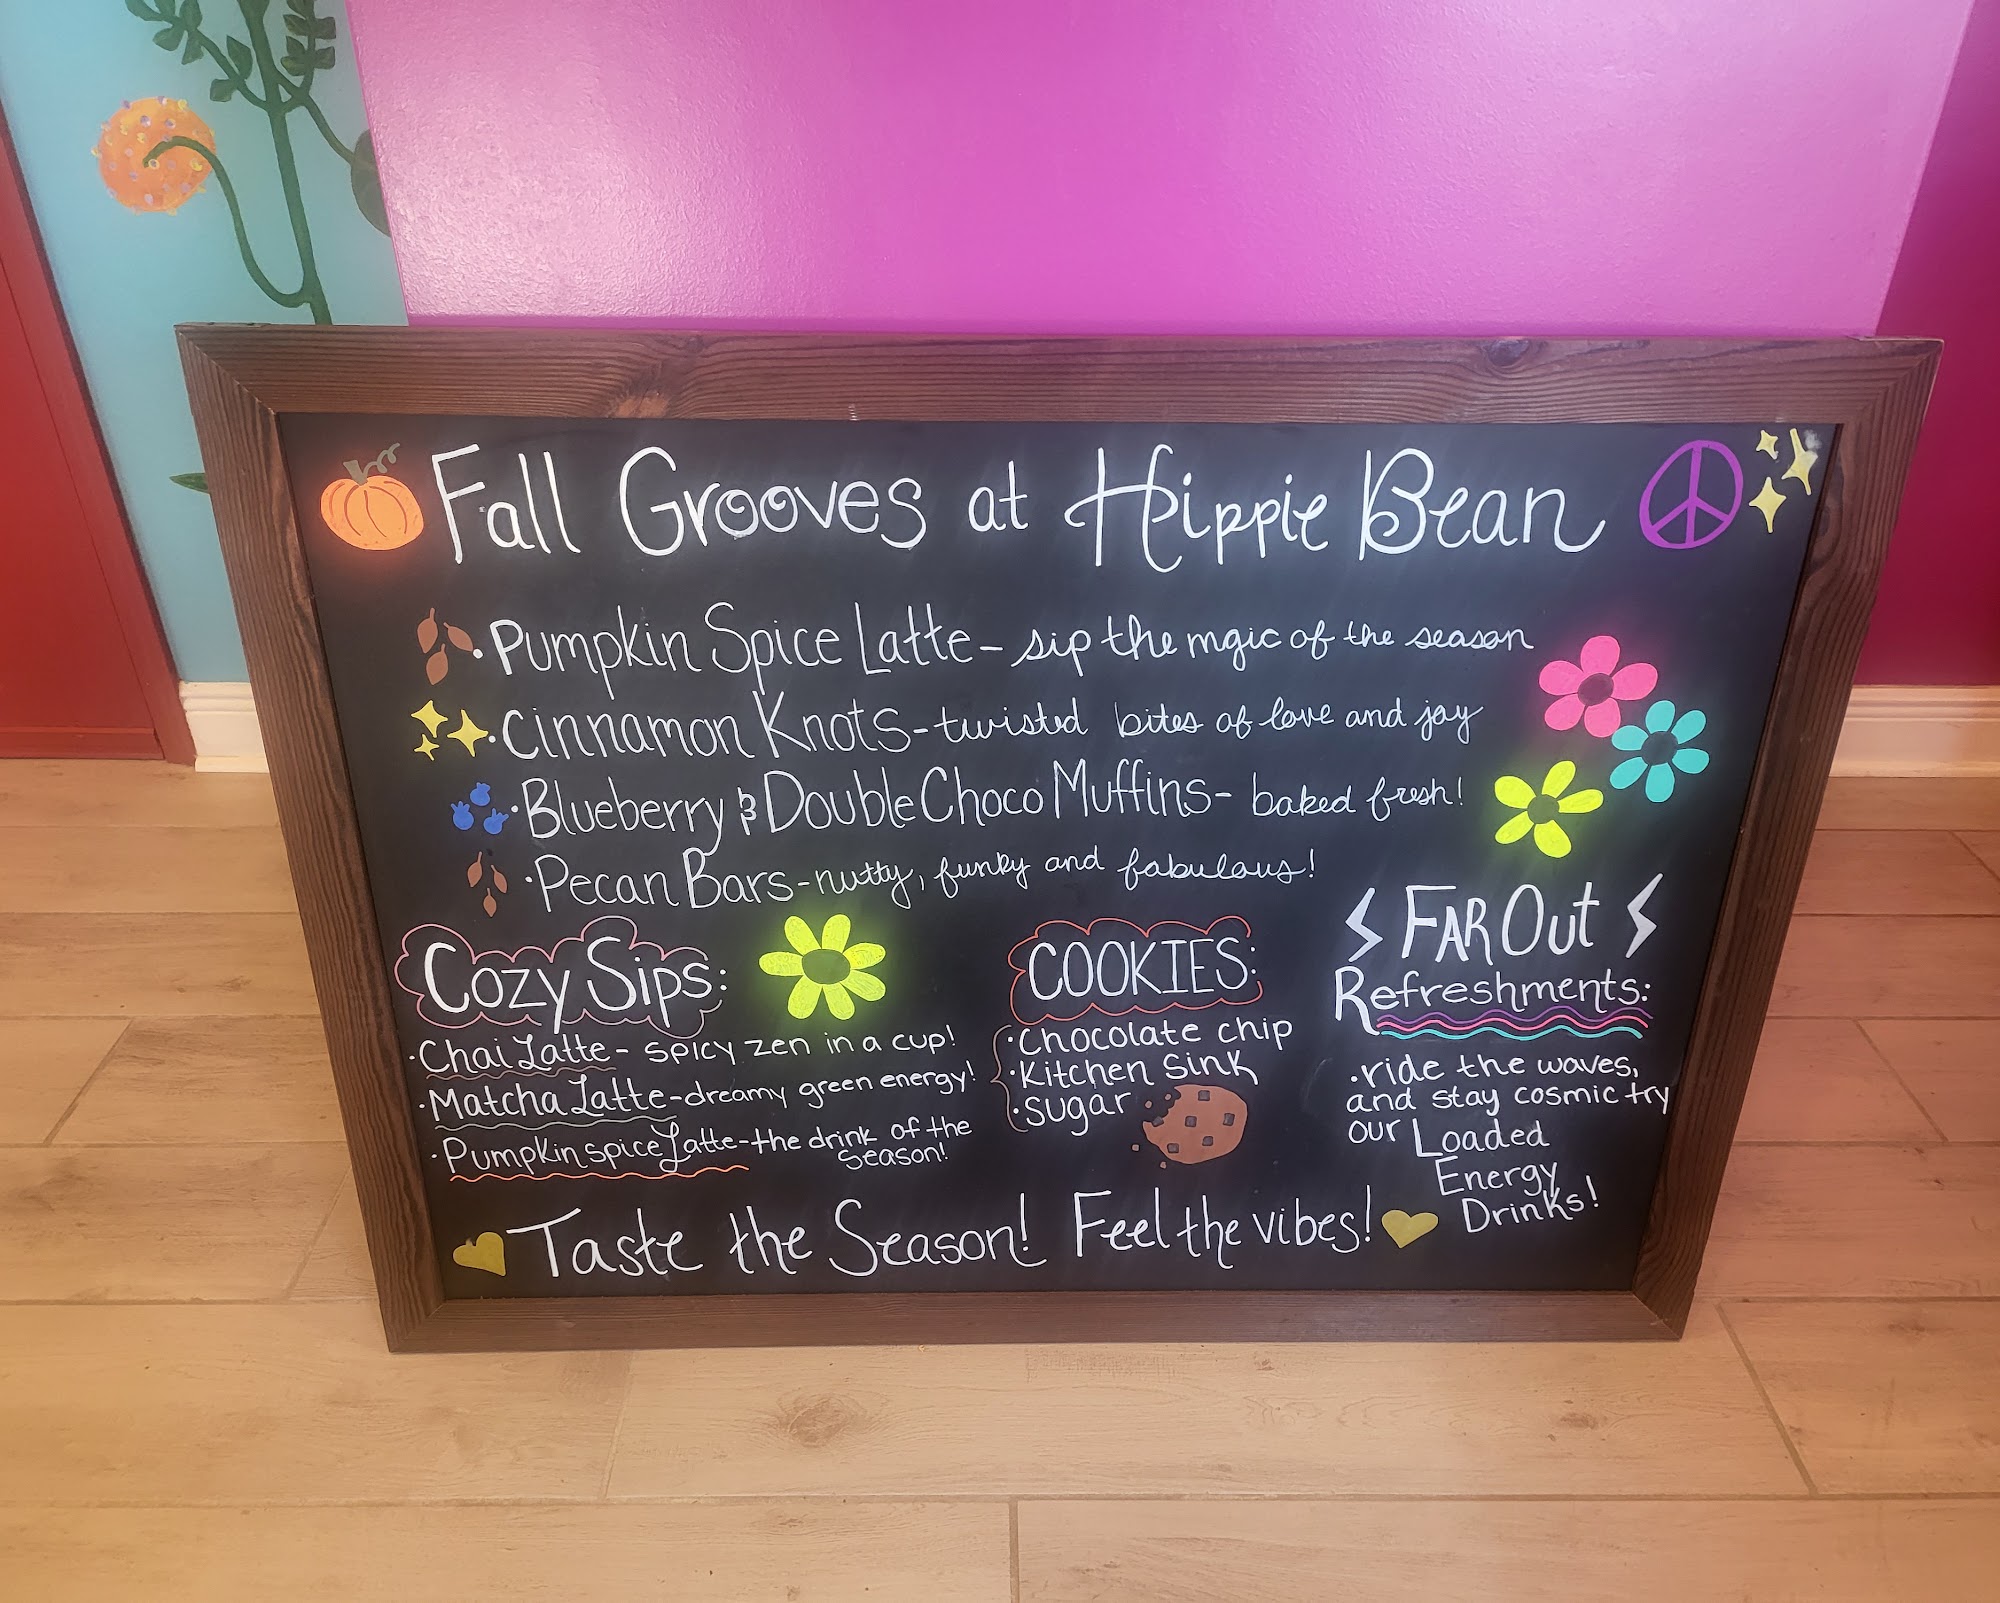 Fall Grooves at Hippie Bean
• Pumpkin Spice Latte - sip the mgic of the season
• Cinnamon Knots - twisted bites of love and joy
• Blueberry & Double Choco Muffins - baked fresh!
• Pecan Bars - nutty, funky and fabulous!
Cozy Sips:
• Chai Latte - spicy zen in a cup!
• Matcha Latte - dreamy green energy!
• Pumpkin spice Latte - the drink of the
season!
COOKIES:
• Chocolate chip
• Kitchen Sink
• Sugar
FAR Out
Refreshments:
• ride the waves,
and stay cosmic try
our Loaded
Energy
Drinks!
Taste the Season! Feel the vibes!